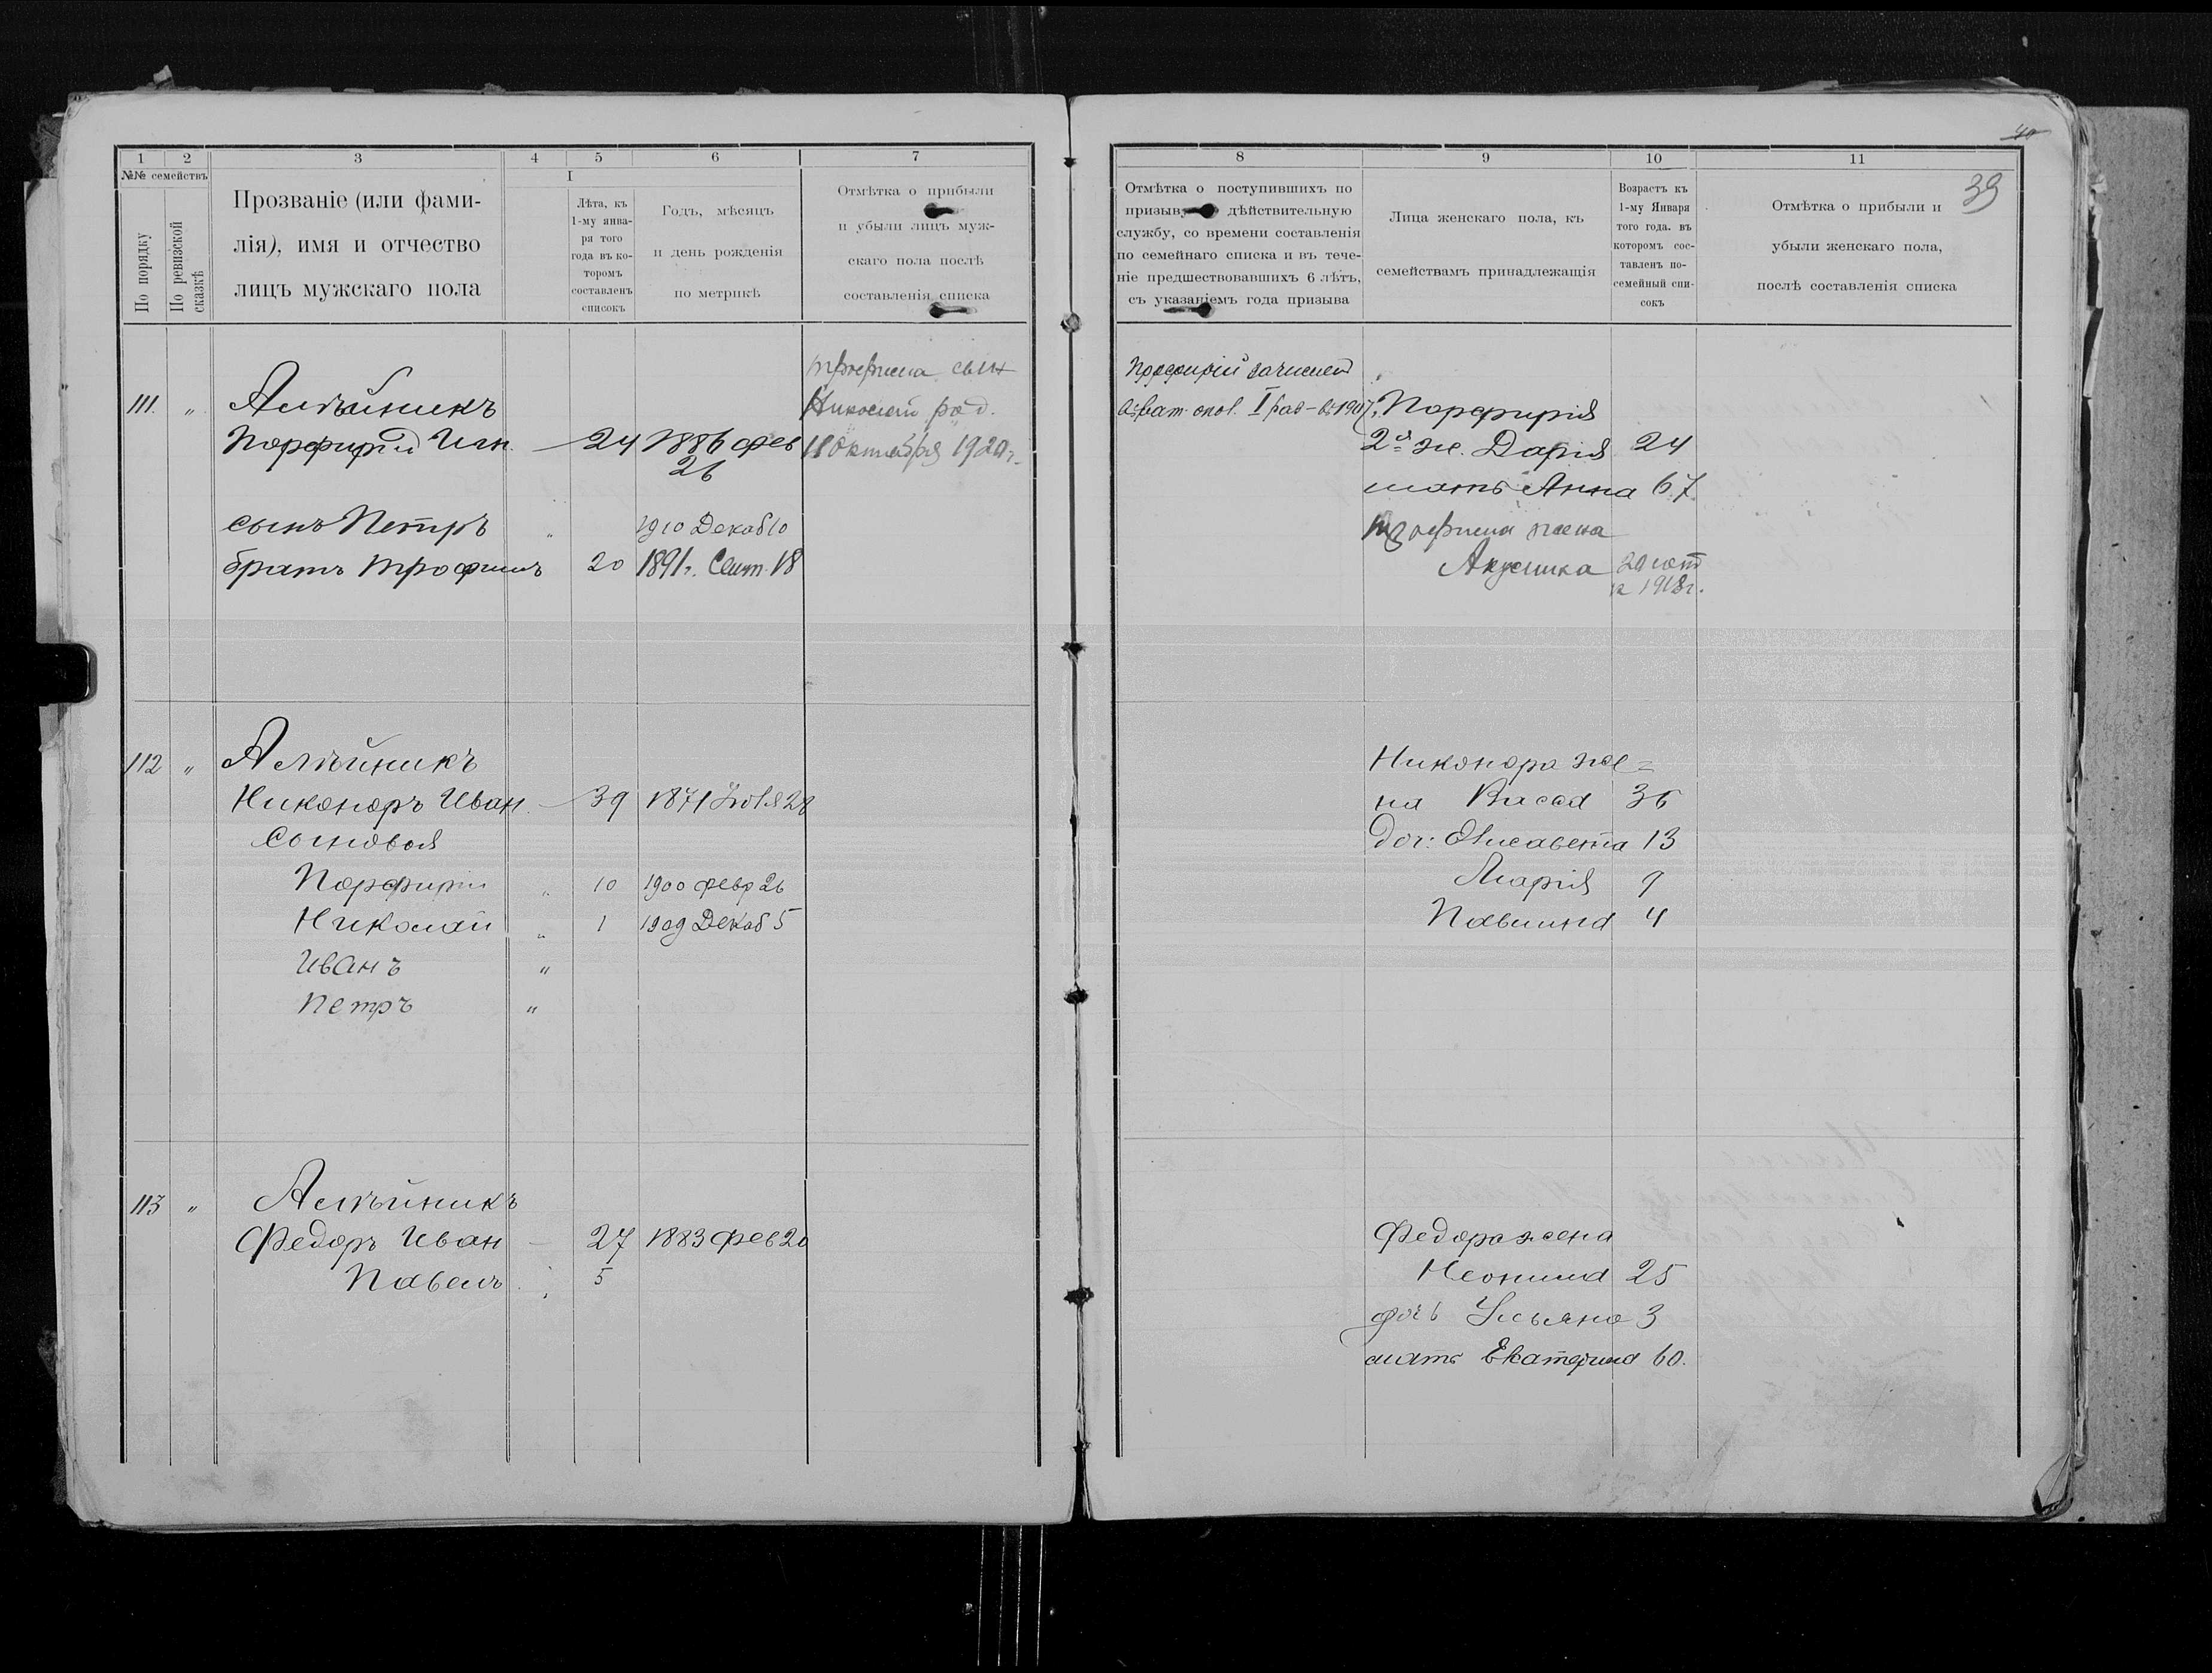 40
39
1 2 3 4 5 6 7
№№ семействъ
По порядку
По ревизской сказкѣ
Прозваніе (или фами-
лія), имя и отчество
лицъ мужскаго пола
I
Лѣта, къ
1-му янва-
ря того
года въ ко-
торомъ
составленъ
списокъ
Годъ, мѣсяцъ
и день рожденія
по метрикѣ
Отмѣтка о прибыли
и убыли лицъ муж-
скаго пола послѣ
составленія списка
111. " Алѣйникъ
Порфирій Иан. — 24 1886 фев
26
сынъ Петръ " 1910 Декаб 10
братъ Трофимъ 20 1891 г. Сент. 18
Трофима сын
Николай род.
18 Октября 1920 г.
112 " Алѣйникъ
Никоноръ Иван. — 39 1871 Іюля 28
Сыновья
Порфирій " 10 1900 февр 26
Николай " 1 1909 Декаб 5
Иванъ "
Петръ "
113 " Алѣйникъ
Федоръ Иван — 27 1883 фев 20
Павелъ " 5
8 9 10 11
Отмѣтка о поступившихъ по
призыву дѣйствительную
службу, со времени составленія
по семейнаго списка и въ тече-
ніе предшествовавшихъ 6 лѣтъ,
съ указаніемъ года призыва
Лица женскаго пола, къ
семействамъ принадлежащія
Возрастъ къ
1-му Января
того года. въ
которомъ сос-
тавленъ по-
семейный спи-
сокъ
Отмѣтка о прибыли и
убыли женскаго пола,
послѣ составленія списка
Порфирій зачислен
въ рат. опол. I раз – въ 1907 г.
Порфирія
2я ж. Дарія 24
мать Анна 67
Трофима жена
Акулина 20 лет
в 1918 г.
Никонора же=
на Васса 36
доч: Елисавета 13
Марія 9
Павлина 4
Федора жена
Неонила 25
дочь Ульяна 3
мать Екатерина 60.